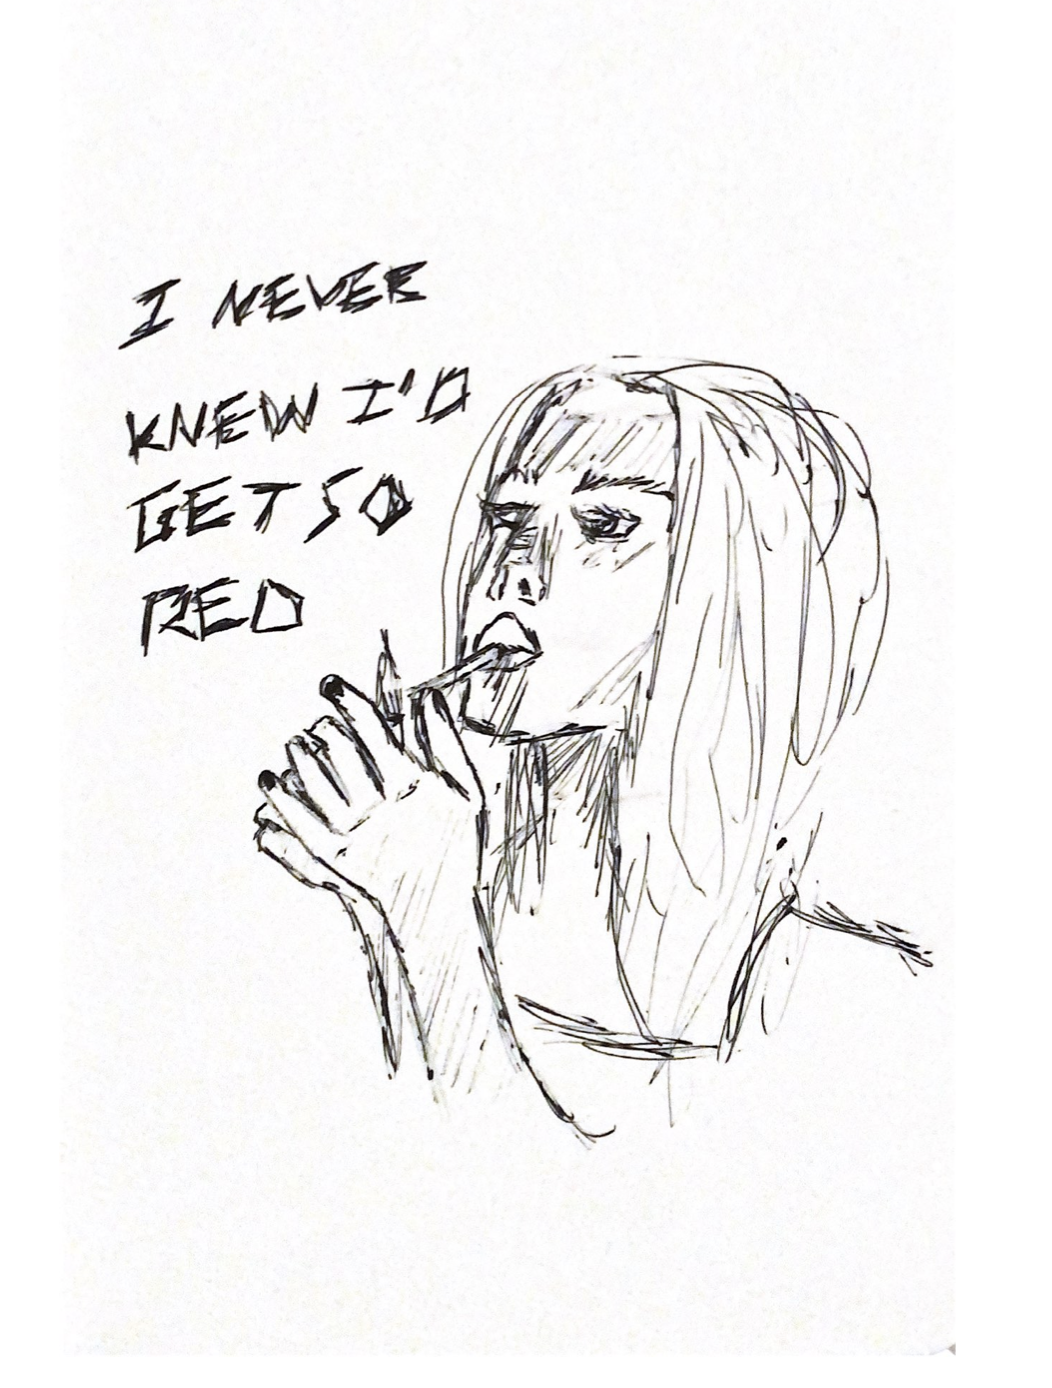 I NEVER
KNEW I'D
GET SO
RED